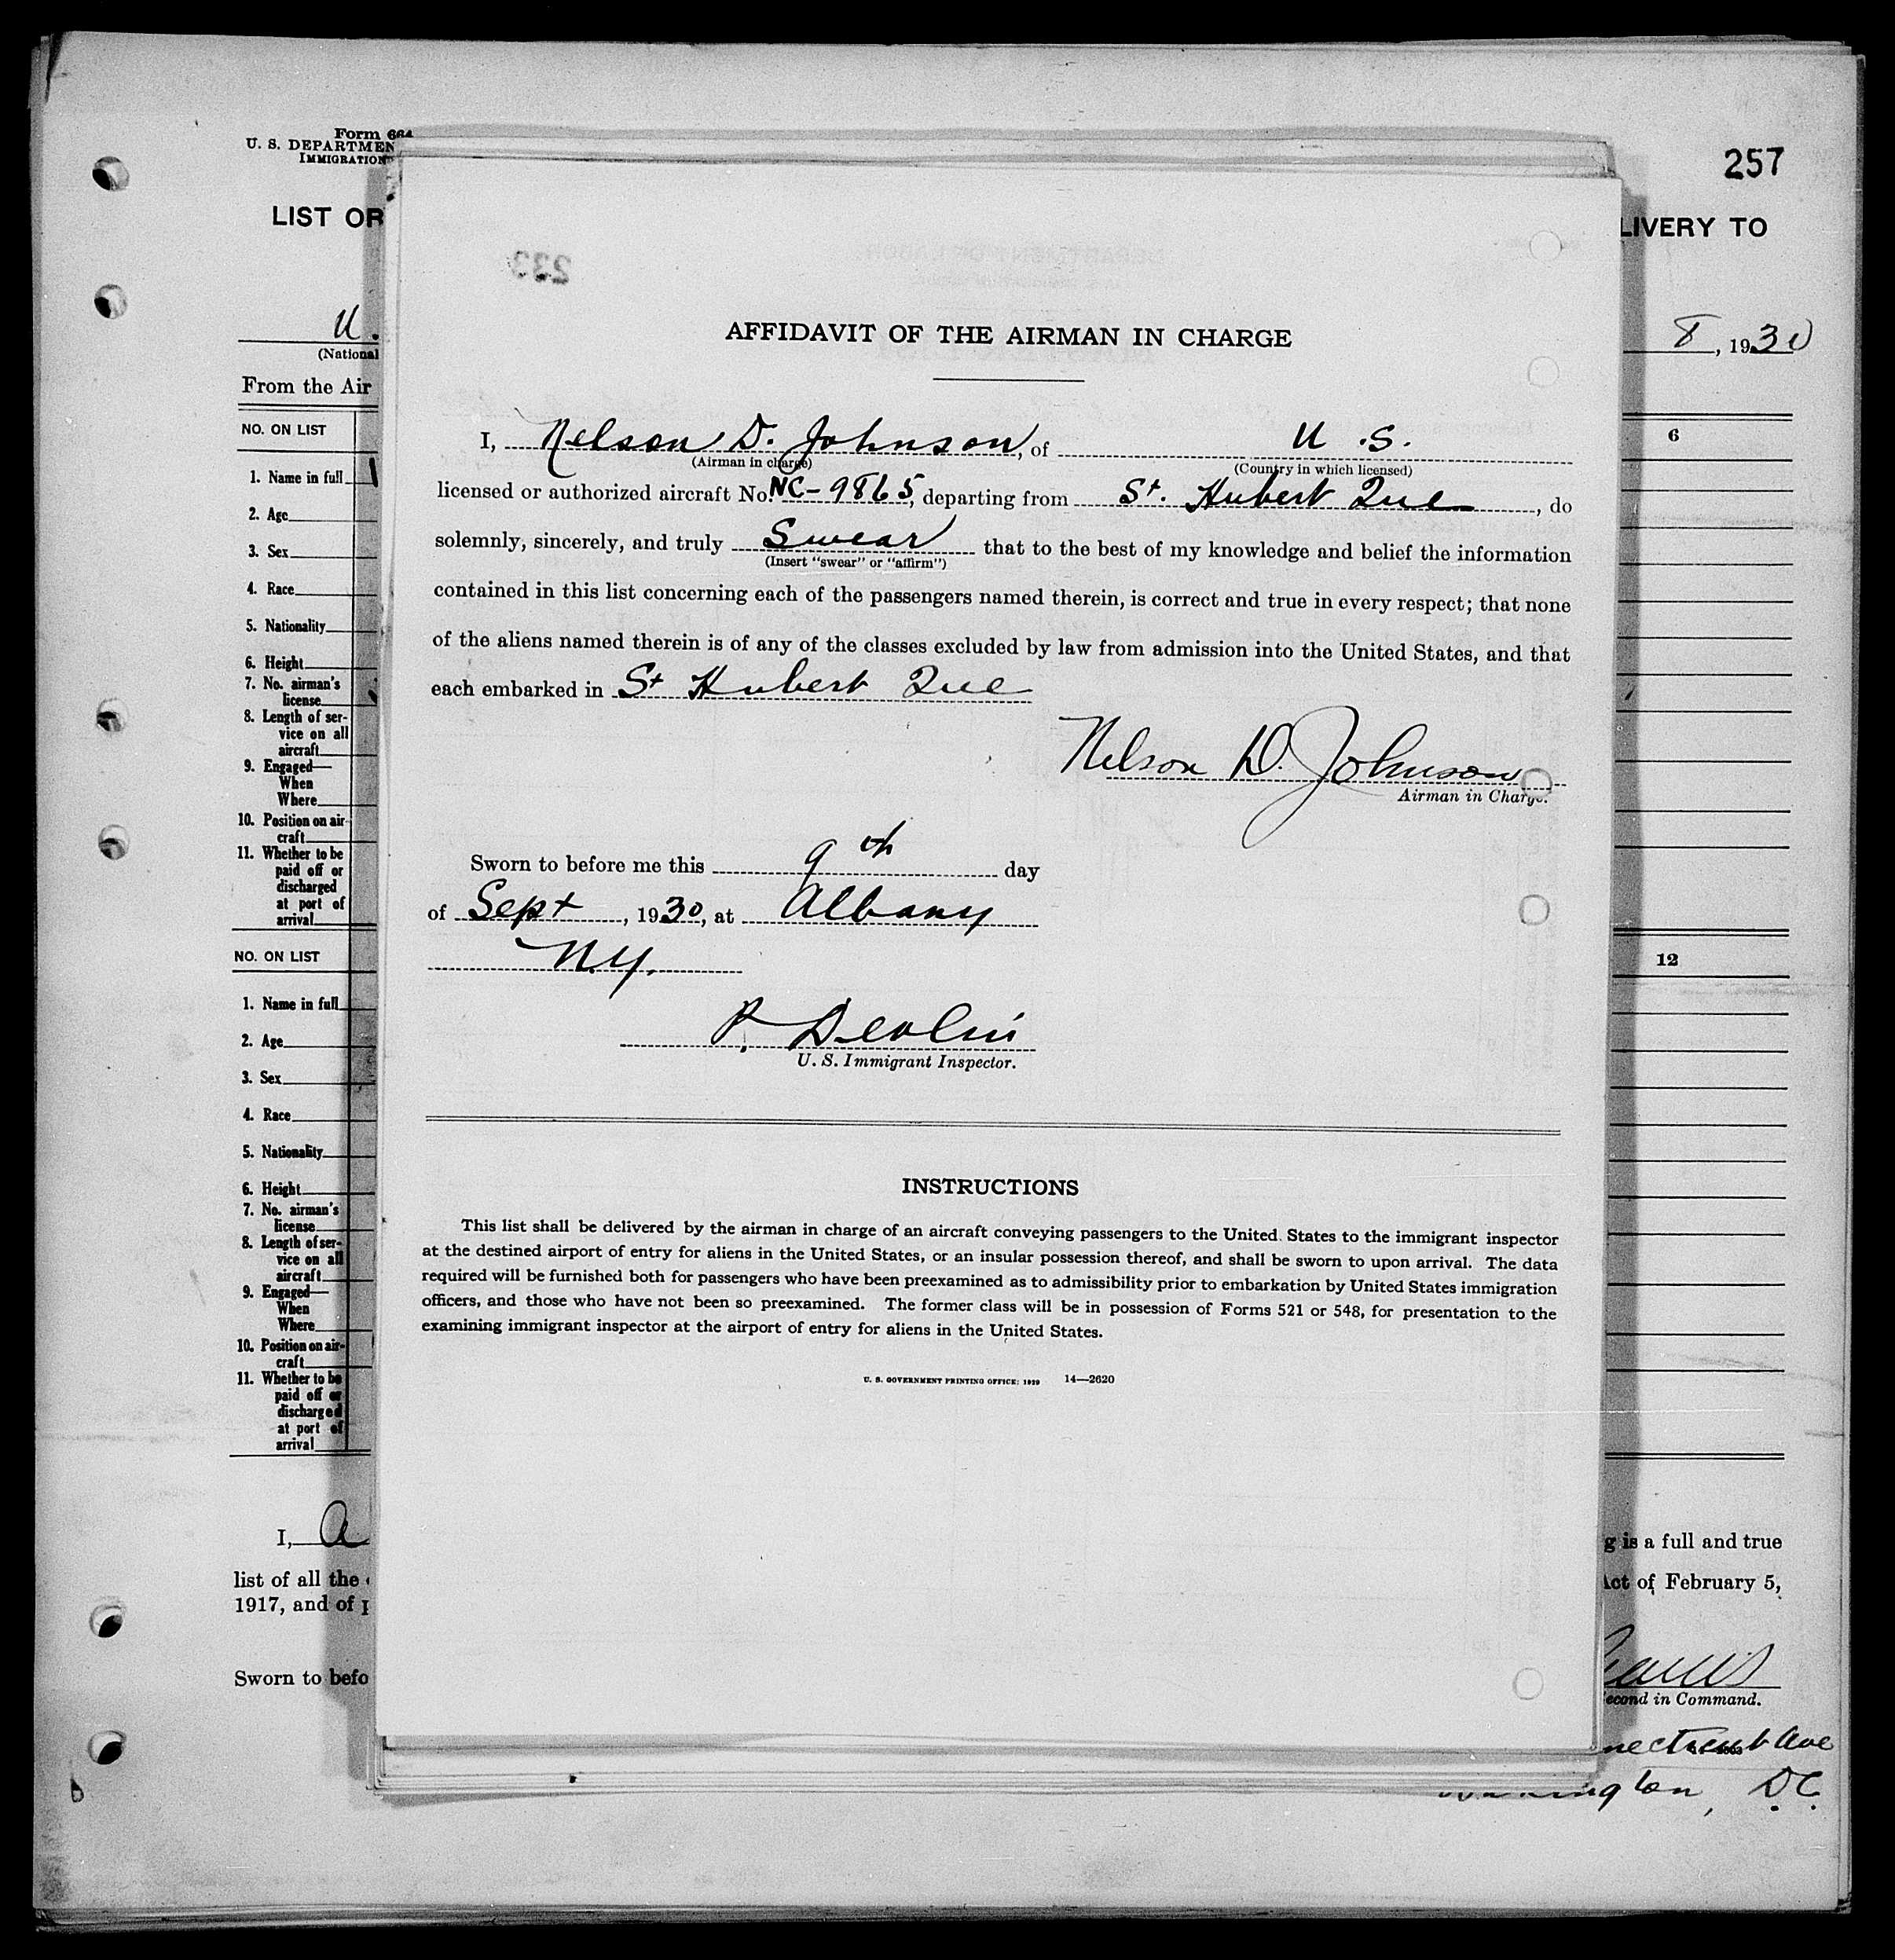 Form 664
U. S. DEPARTMEN
IMMIGRATION
257
LIST OR
LIVERY TO
U.
(National
8, 1930
From the Air
NO. ON LIST
6
1. Name in full
2. Age
3. Sex
4. Race
5. Nationality
6. Height
7. No. airman's
license
8. Length of ser-
vice on all
aircraft
9. Engaged—
When
Where
10. Position on air-
craft
11. Whether to be
paid off or
discharged
at port of
arrival
NO. ON LIST
12
1. Name in full
2. Age
3. Sex
4. Race
5. Nationality
6. Height
7. No. airman's
license
8. Length of ser-
vice on all
aircraft
9. Engaged—
When
Where
10. Position on air-
craft
11. Whether to be
paid off or
discharged
at port of
arrival
I, A
g is a full and true
list of all the
Act of February 5,
1917, and of p
Sworn to befo
econd in Command.
necticut Ave
Washington, D.C.
233
AFFIDAVIT OF THE AIRMAN IN CHARGE
I, Nelson D. Johnson, of U.S.
(Airman in charge) (Country in which licensed)
licensed or authorized aircraft No. NC-9865, departing from St. Hubert Que, do
solemnly, sincerely, and truly Swear that to the best of my knowledge and belief the information
(Insert "swear" or "affirm")
contained in this list concerning each of the passengers named therein, is correct and true in every respect; that none
of the aliens named therein is of any of the classes excluded by law from admission into the United States, and that
each embarked in St Hubert Que
Nelson D. Johnson
Airman in Charge.
Sworn to before me this 9th day
of Sept, 1930, at Albany
N.Y.
P. Devlin
U. S. Immigrant Inspector.
INSTRUCTIONS
This list shall be delivered by the airman in charge of an aircraft conveying passengers to the United States to the immigrant inspector
at the destined airport of entry for aliens in the United States, or an insular possession thereof, and shall be sworn to upon arrival. The data
required will be furnished both for passengers who have been preexamined as to admissibility prior to embarkation by United States immigration
officers, and those who have not been so preexamined. The former class will be in possession of Forms 521 or 548, for presentation to the
examining immigrant inspector at the airport of entry for aliens in the United States.
U. S. GOVERNMENT PRINTING OFFICE: 1929 14—2620